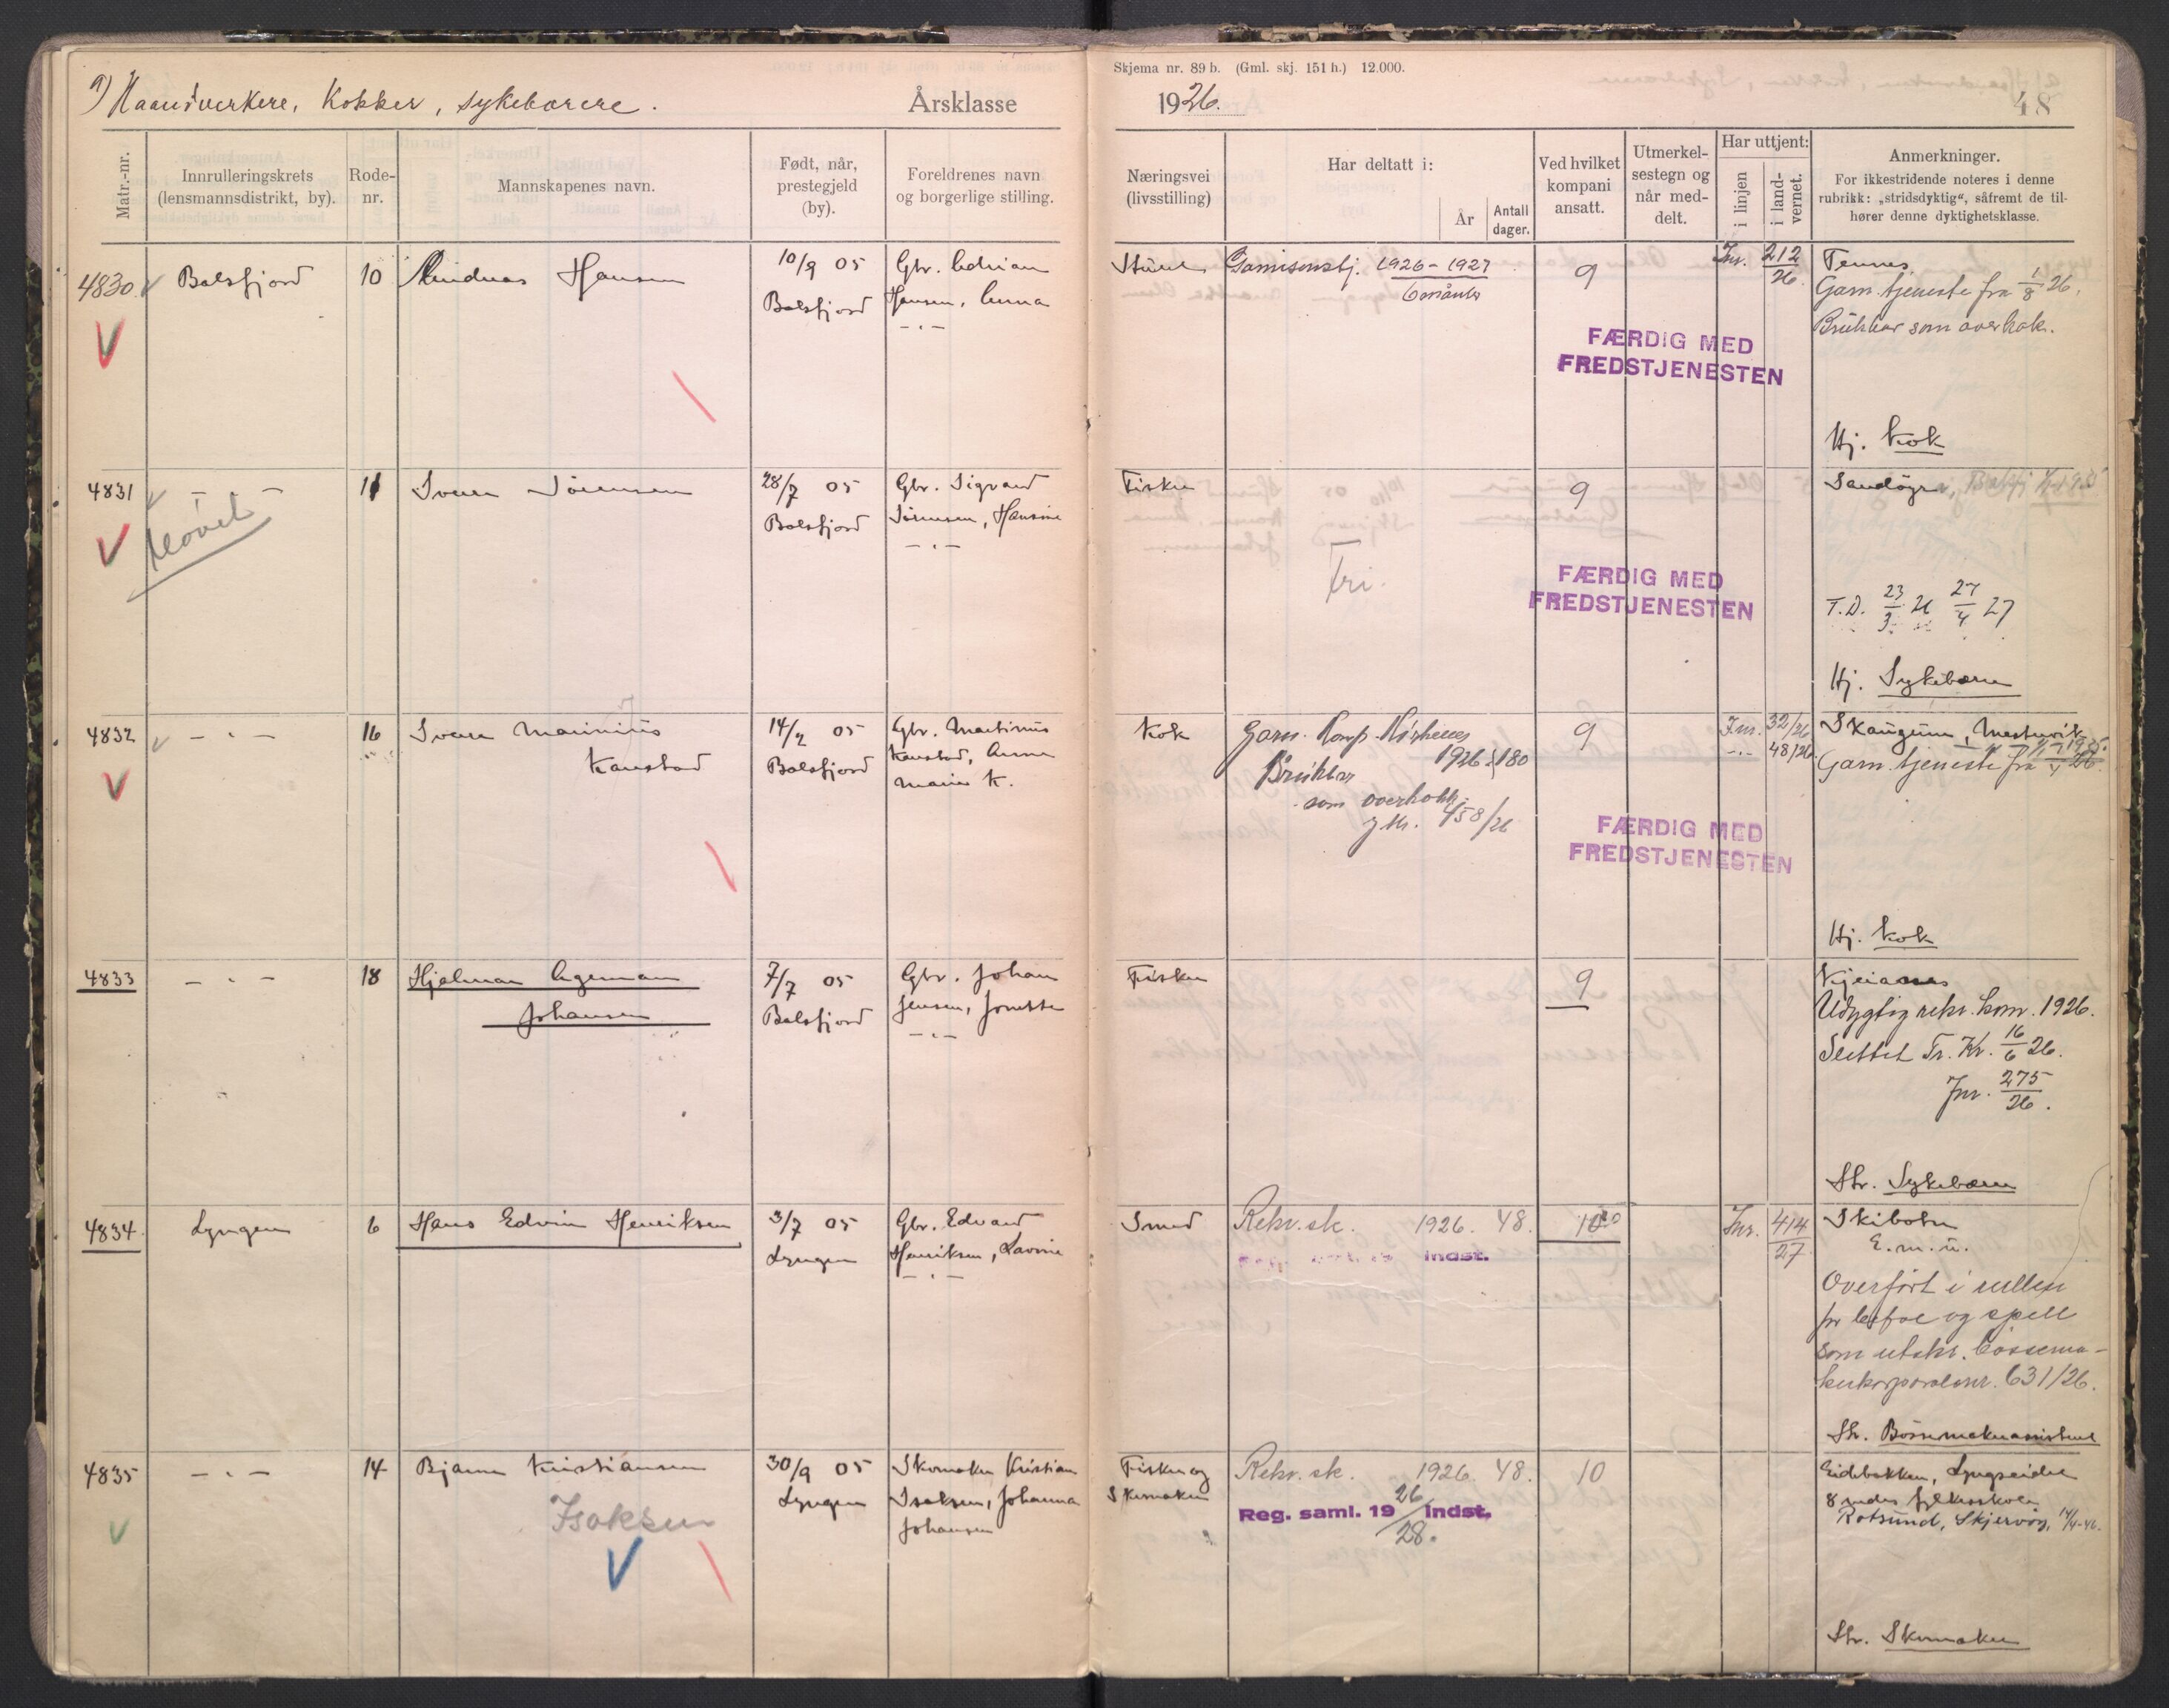 a) Haandverkere, Kokker, sykebærere.
Årsklasse
Skjema nr. 89 b. (Gml. skj. 151 h.) 12.000.
1926.
48
Matr.-nr.
Innrulleringskrets
(lensmannsdistrikt, by).
Rode-
nr.
Mannskapenes navn.
Født, når,
prestegjeld
(by).
Foreldrenes navn
og borgerlige stilling.
Næringsvei
(livsstilling)
Har deltatt i:
År
Antall
dager.
Ved hvilket
kompani
ansatt.
Utmerkel-
sestegn og
når med-
delt.
Har uttjent:
i linjen
i land-
vernet.
Anmerkninger.
For ikkestridende noteres i denne
rubrikk: „stridsdyktig“, såfremt de til-
hører denne dyktighetsklasse.
4830
Balsfjord
10
Andreas Hansen
10/9 05
Balsfjord
Gbr. Adrian
Hansen, Anna
- " -
Garnisonstj. 1926 - 1927
6 måneder
9
Jnr. 212
26.
Tennes.
Garn. tjeneste fra 1/8 26.
Brukbar som overkok.
FÆRDIG MED
FREDSTJENESTEN
Hj. Kok
4831
- " -
Prøvet
11
Sverre Sørensen
28/7 05
Balsfjord
Gbr. Sigvard
Sørensen, Hansine
- " -
Fisker
Fri.
9
Sandøyr
FÆRDIG MED
FREDSTJENESTEN
T.D. 23/3 26 27/4 27
Hj. Sykebærer
4832
- " -
16
Sverre Marinius
Kanstad
14/2 05
Balsfjord
Gbr. Martinus
Kanstad, Anna
Marie K.
Kok
Garn. Komp. Kirkenes
1926 : 180
Brukbar
som overkokk.
jnr. 458/26
9
Jnr. 32/26
- " - 48/26.
Skaugum, Mestervik
Garn. tjeneste fra 1/4 26.
FÆRDIG MED
FREDSTJENESTEN
Hj. Kok
4833
- " -
18
Hjalmar Agemann
Johansen
7/7 05
Balsfjord
Gbr. Johan
Jensen, Jonette
- " -
Fisker
9
Udygtig rekr. kom. 1926.
Slettet Tr. Kr. 16/6 26.
Jnr. 275
26.
Str. Sykebærer
4834
Lyngen
6
Hans Edvin Henriksen
3/7 05
Lyngen
Gbr. Edvard
Henriksen, Lavine
- " -
Smed
Rekr.sk. 1926. 48.
Indst.
10
Jnr. 414
27
Skibotn
E.m.u.
Overført i rullen
for befal og spell
som utskr. bøssema-
kerkorporal jnr. 631/26.
Str. Bøssemakerassistent
4835
- " -
14
Bjarne Kristiansen
Isaksen
30/9 05
Lyngen
Skomaker Kristian
Isaksen, Johanna
Johansen
Fisker og
Skomaker
Rekr.sk. 1926. 48.
Reg. saml. 19 26/28. Indst.
10
Eidebakken, Lyngseidet
8 mdrs fylkesskole
Rotsund, Skjervøy, 14/4-46.
Str. Skomaker